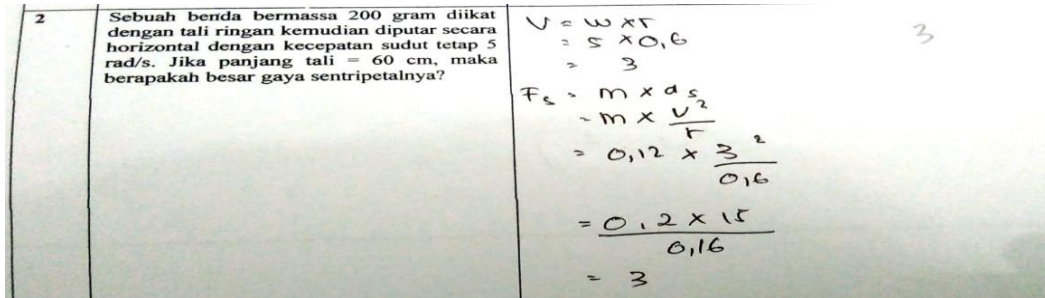 2
Sebuah benda bermassa 200 gram diikat
dengan tali ringan kemudian diputar secara
horizontal dengan kecepatan sudut tetap 5
rad/s. Jika panjang tali = 60 cm, maka
berapakah besar gaya sentripetalnya?
V = w x r
= 5 x 0,6
= 3
3
Fs = m x as
= m x v²/r
= 0,12 x 3²/0,6
= 0,2 x 15/0,16
= 3